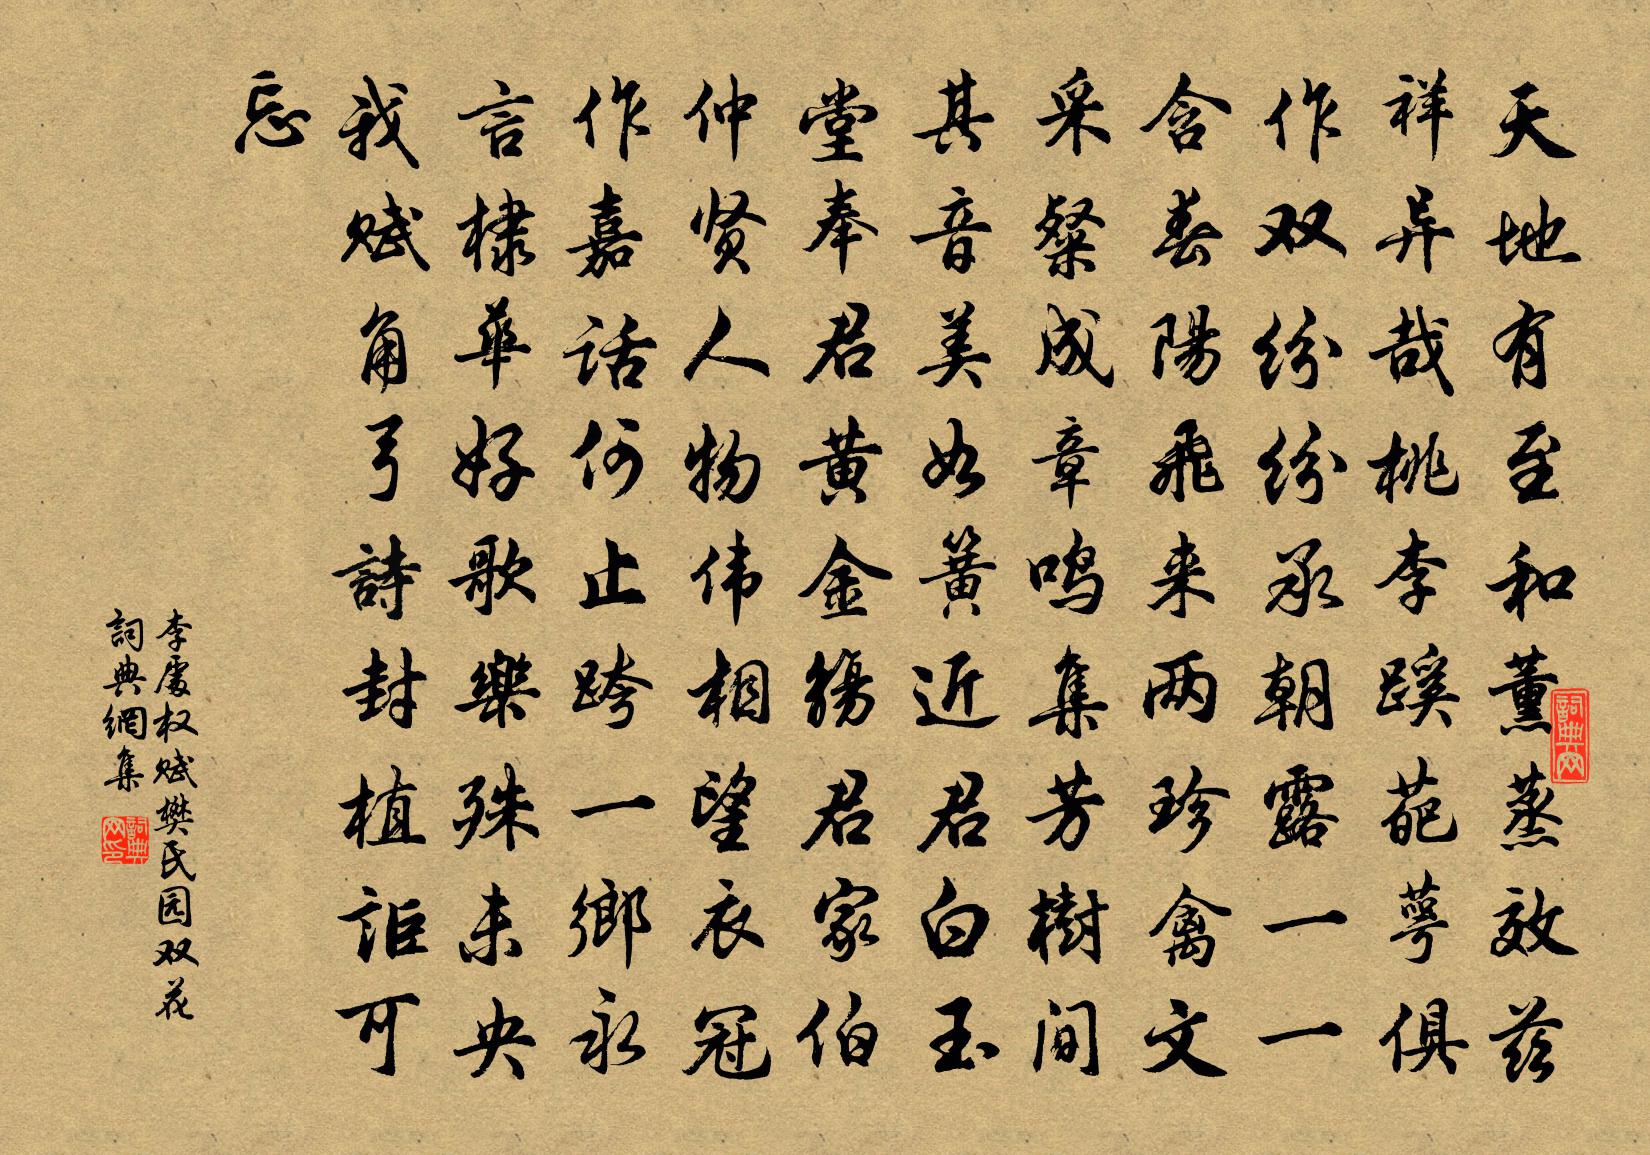 天地有至和薰蒸效兹
祥异哉桃李蹊葩萼俱
作双纷纷承朝露一一
含春陽飛来两珍禽文
采粲成章鸣集芳樹间
其音美如簧近君白玉
堂奉君黄金觞君家伯
仲贤人物伟相望衣冠
作嘉话何止跨一鄉永
言棣華好歌樂殊未央
我赋角弓詩封植詎可
忘
李處权赋樊氏园双花
詞典網集
詞典网
詞典网印